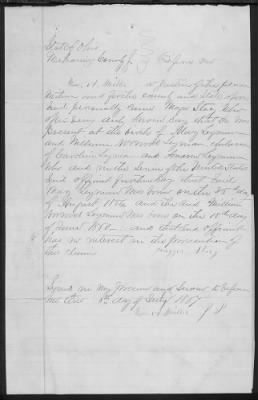 State of Ohio
Mahoning County } ss Before me
Wm. H. Miller a Justice of the peace
within and for the county and State afore
said personally came Maggie Stacy who
upon being duly sworn says that she was
present at the birth of Mary Leyman
and William Norwood Leyman children
of Caroline Leyman and Anson Leyman
who died in the service of the United States
and affiant further say that said
Mary Leyman was born on the 25 day
of August 1856 and the said William
Norwood Leyman was born on the 10th day
of June 1860 and that said affiant
has no interest in the prosecution of
this claim
Stacy
Signed in my presence and sworn to before
me this 8th day of July 1867
Wm. H. Miller J P